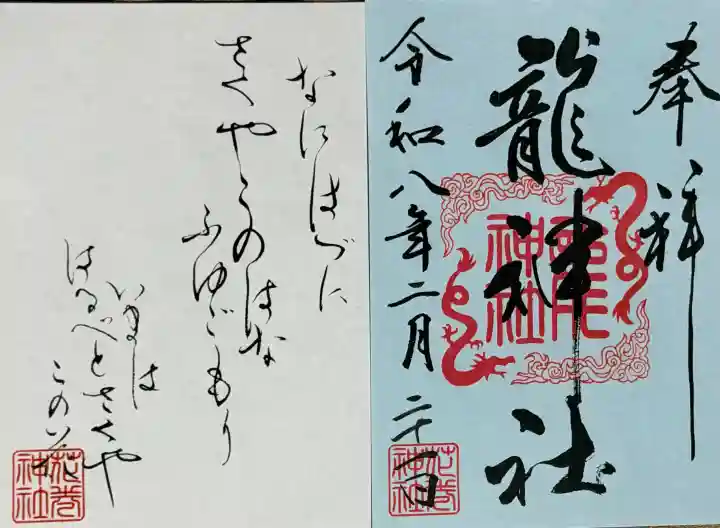 奉拝
龍神社
龍神社
令和八年二月二十一日
花巻神社
なにはづに
さくやこのはな
ふゆごもり
いまは
はるべとさくや
このはな
花巻神社